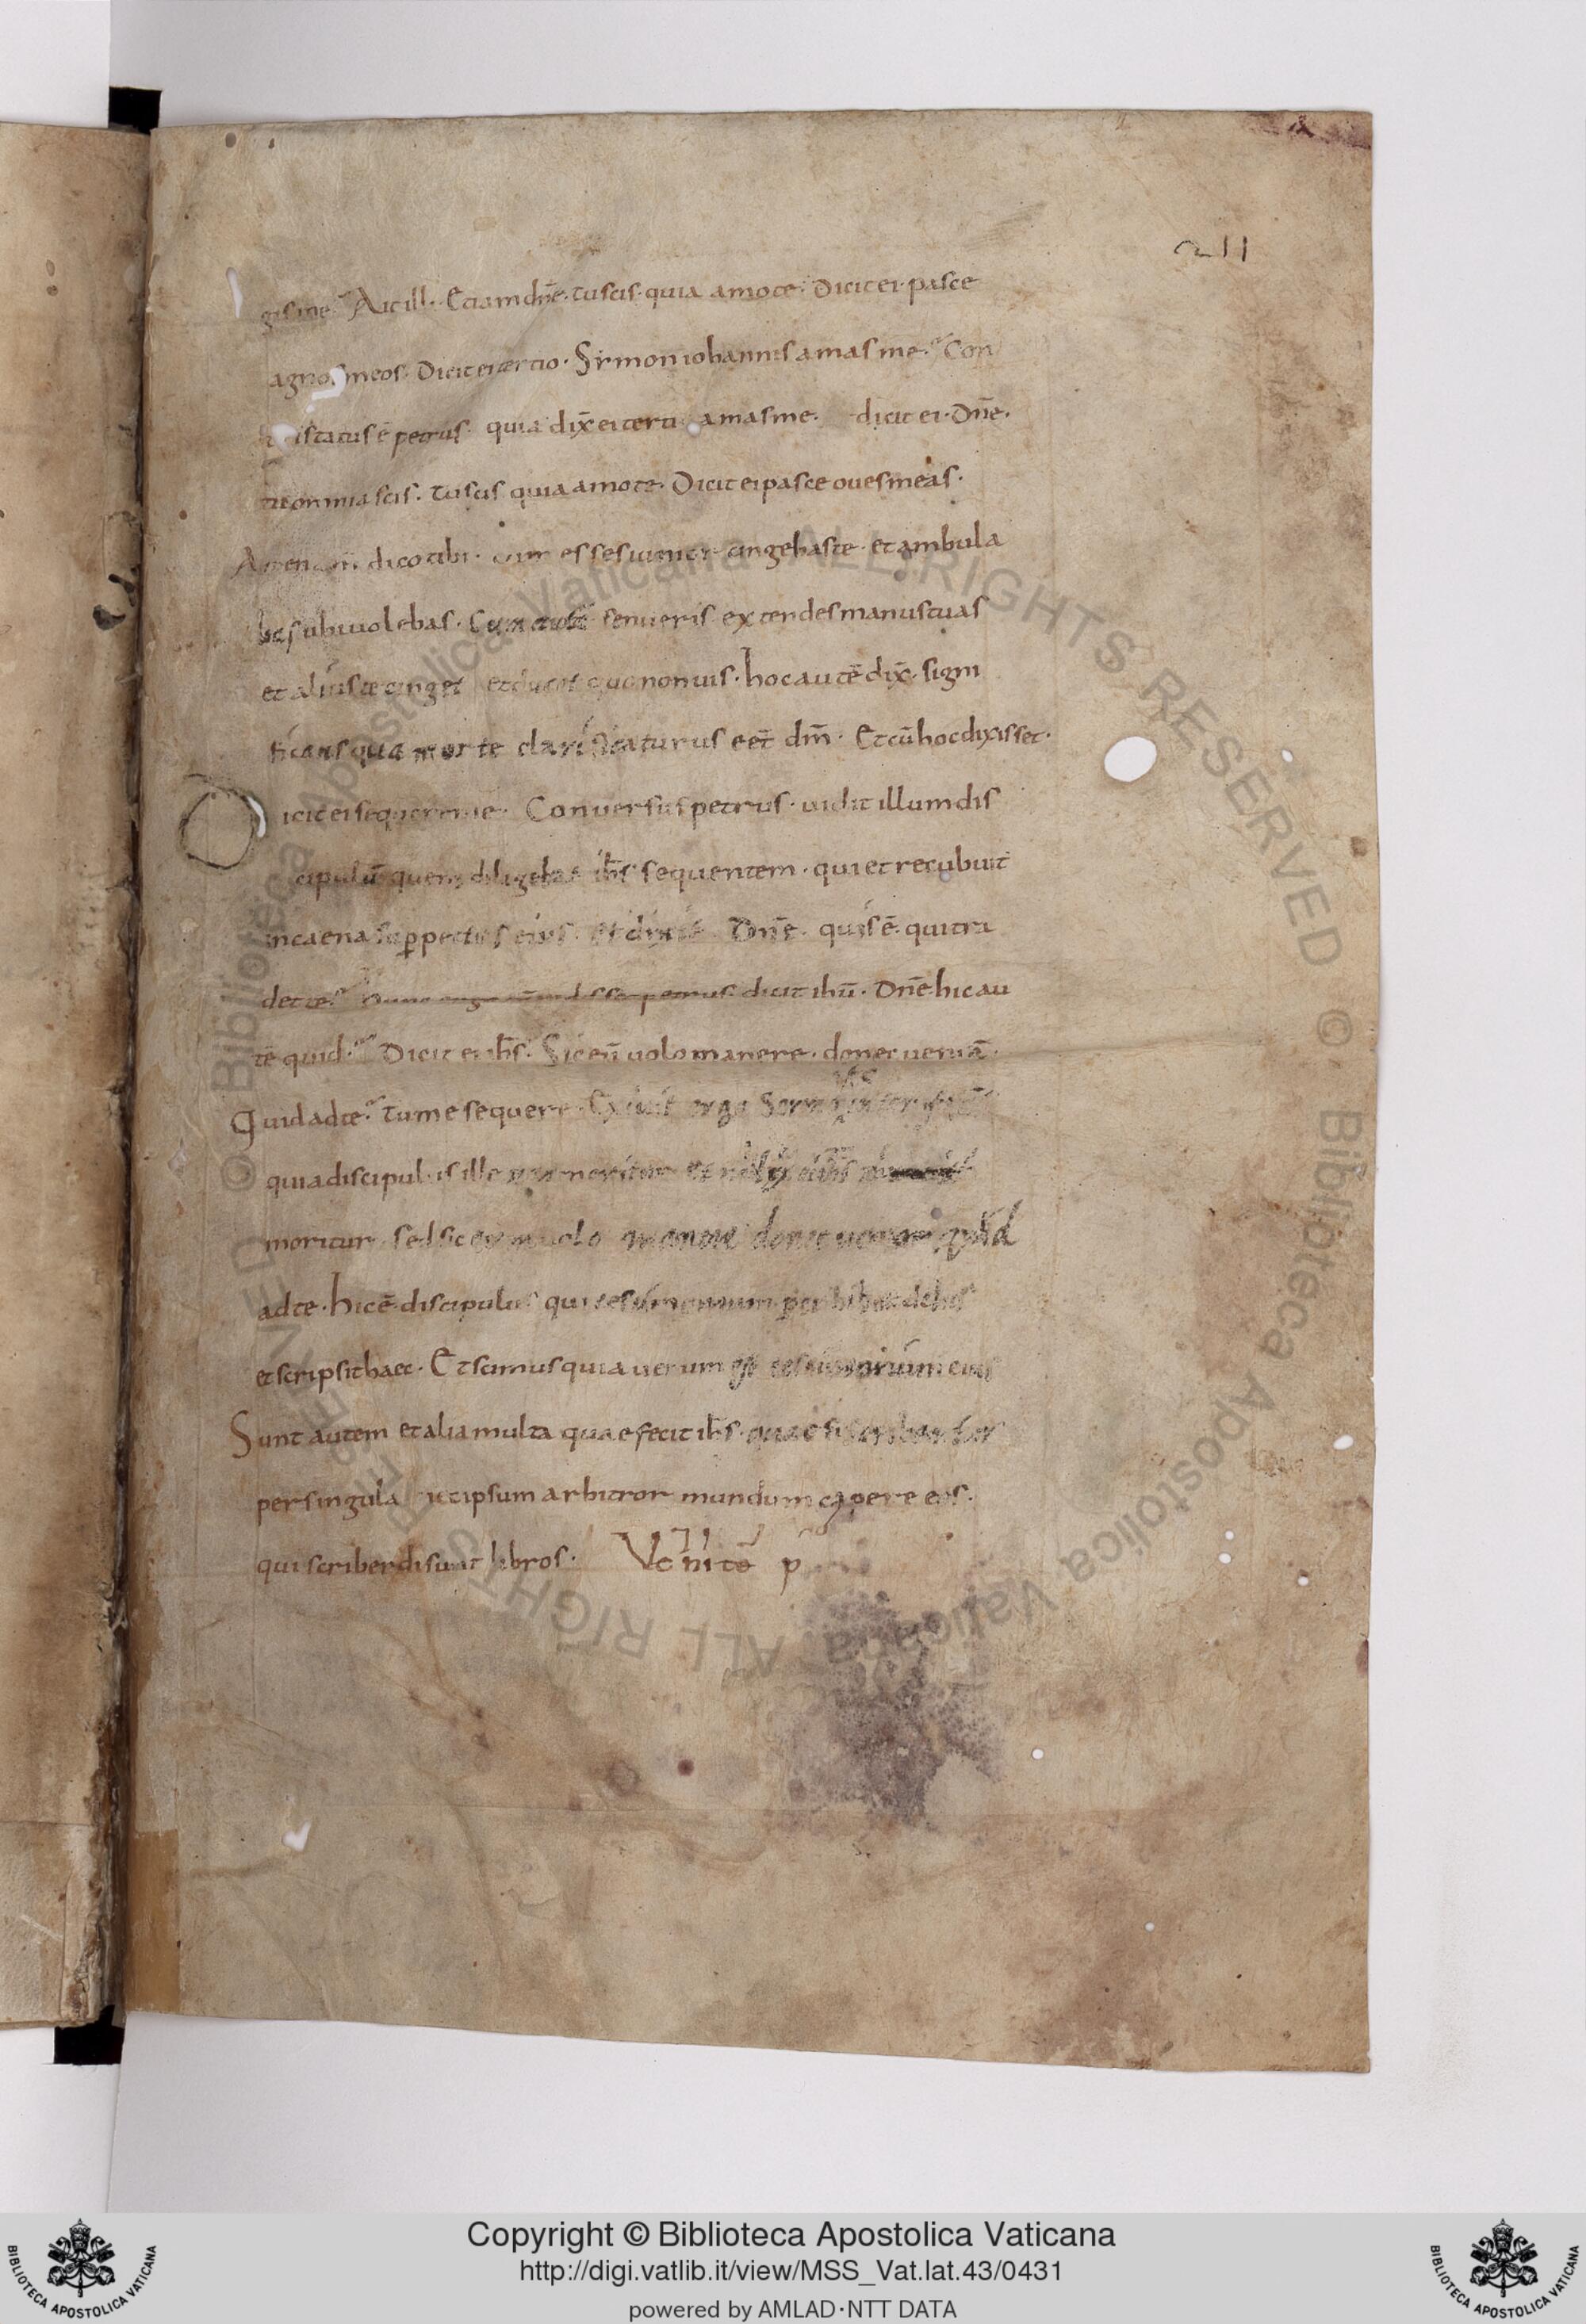 211
gisme? Ait ill. Etiam dn̄e. tu scis. quia amo te. Dicit ei. pasce
agnos meos. Dicit ei tertio. Symon iohannis amas me? Con
istatus ē petrus. quia dix̄ ei terti amas me. dicit ei. Dn̄e.
tu omnia scis. Tu scis quia amo te. Dicit ei pasce oues meas.
Amen dico tibi. cum esses iunior cingebas te. et ambula
bas ubi uolebas. Cum autē senueris extendes manus tuas
et alius te cinget et ducet quo non uis. hoc autē dix̄. signi
ficans qua morte clarificaturus eēt dm̄. Et cū hoc dixisset.
icit ei sequere me. Conuersus petrus. uidit illum dis
cipulū quem diligebat ih̄s sequentem. qui et recubuit
in caena sup pectus eius. et dixit Dn̄e. quis ē. qui tra
det te? petrus. dicit ihū. Dn̄e hic au
tē quid? Dicit ei ih̄s. Sic eū uolo manere. donec ueniā.
Quid ad te? tu me sequere. Exiuit ergo Sermo inter
quia discipulus ille non moritur et ih̄s
moritur. sed sic eum uolo manere donec ueniam quid
ad te. hic ē discipulus qui testimonium perhibet de his
et scripsit haec. Et scimus quia uerum est testimonium eius
Sunt autem et alia multa quae fecit ih̄s. quae si scribantur
per singula nec ipsum arbitror mundum capere eos.
qui scribendi sunt libros.
© Biblioteca Apostolica Vaticana ALL RIGHTS RESERVED
© Biblioteca Apostolica Vaticana ALL RIGHTS RESERVED
Copyright © Biblioteca Apostolica Vaticana
http://digi.vatlib.it/view/MSS_Vat.lat.43/0431
powered by AMLAD·NTT DATA
BIBLIOTECA APOSTOLICA VATICANA
BIBLIOTECA APOSTOLICA VATICANA